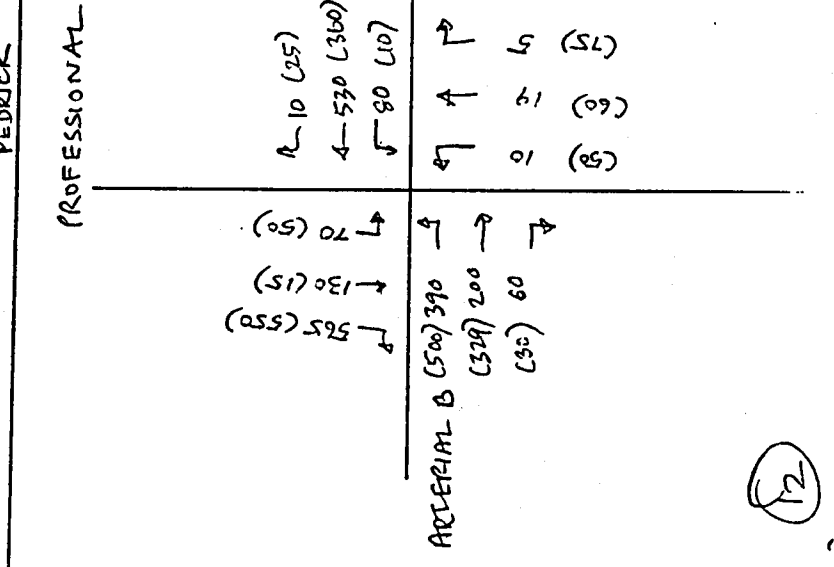 PEDRICK
PROFESSIONAL
10 (25)
530 (360)
80 (10)
5 (75)
(60)
10 (50)
70 (50)
130 (15)
565 (550)
ARTERIAL B
(500) 390
(329) 200
(30) 60
12